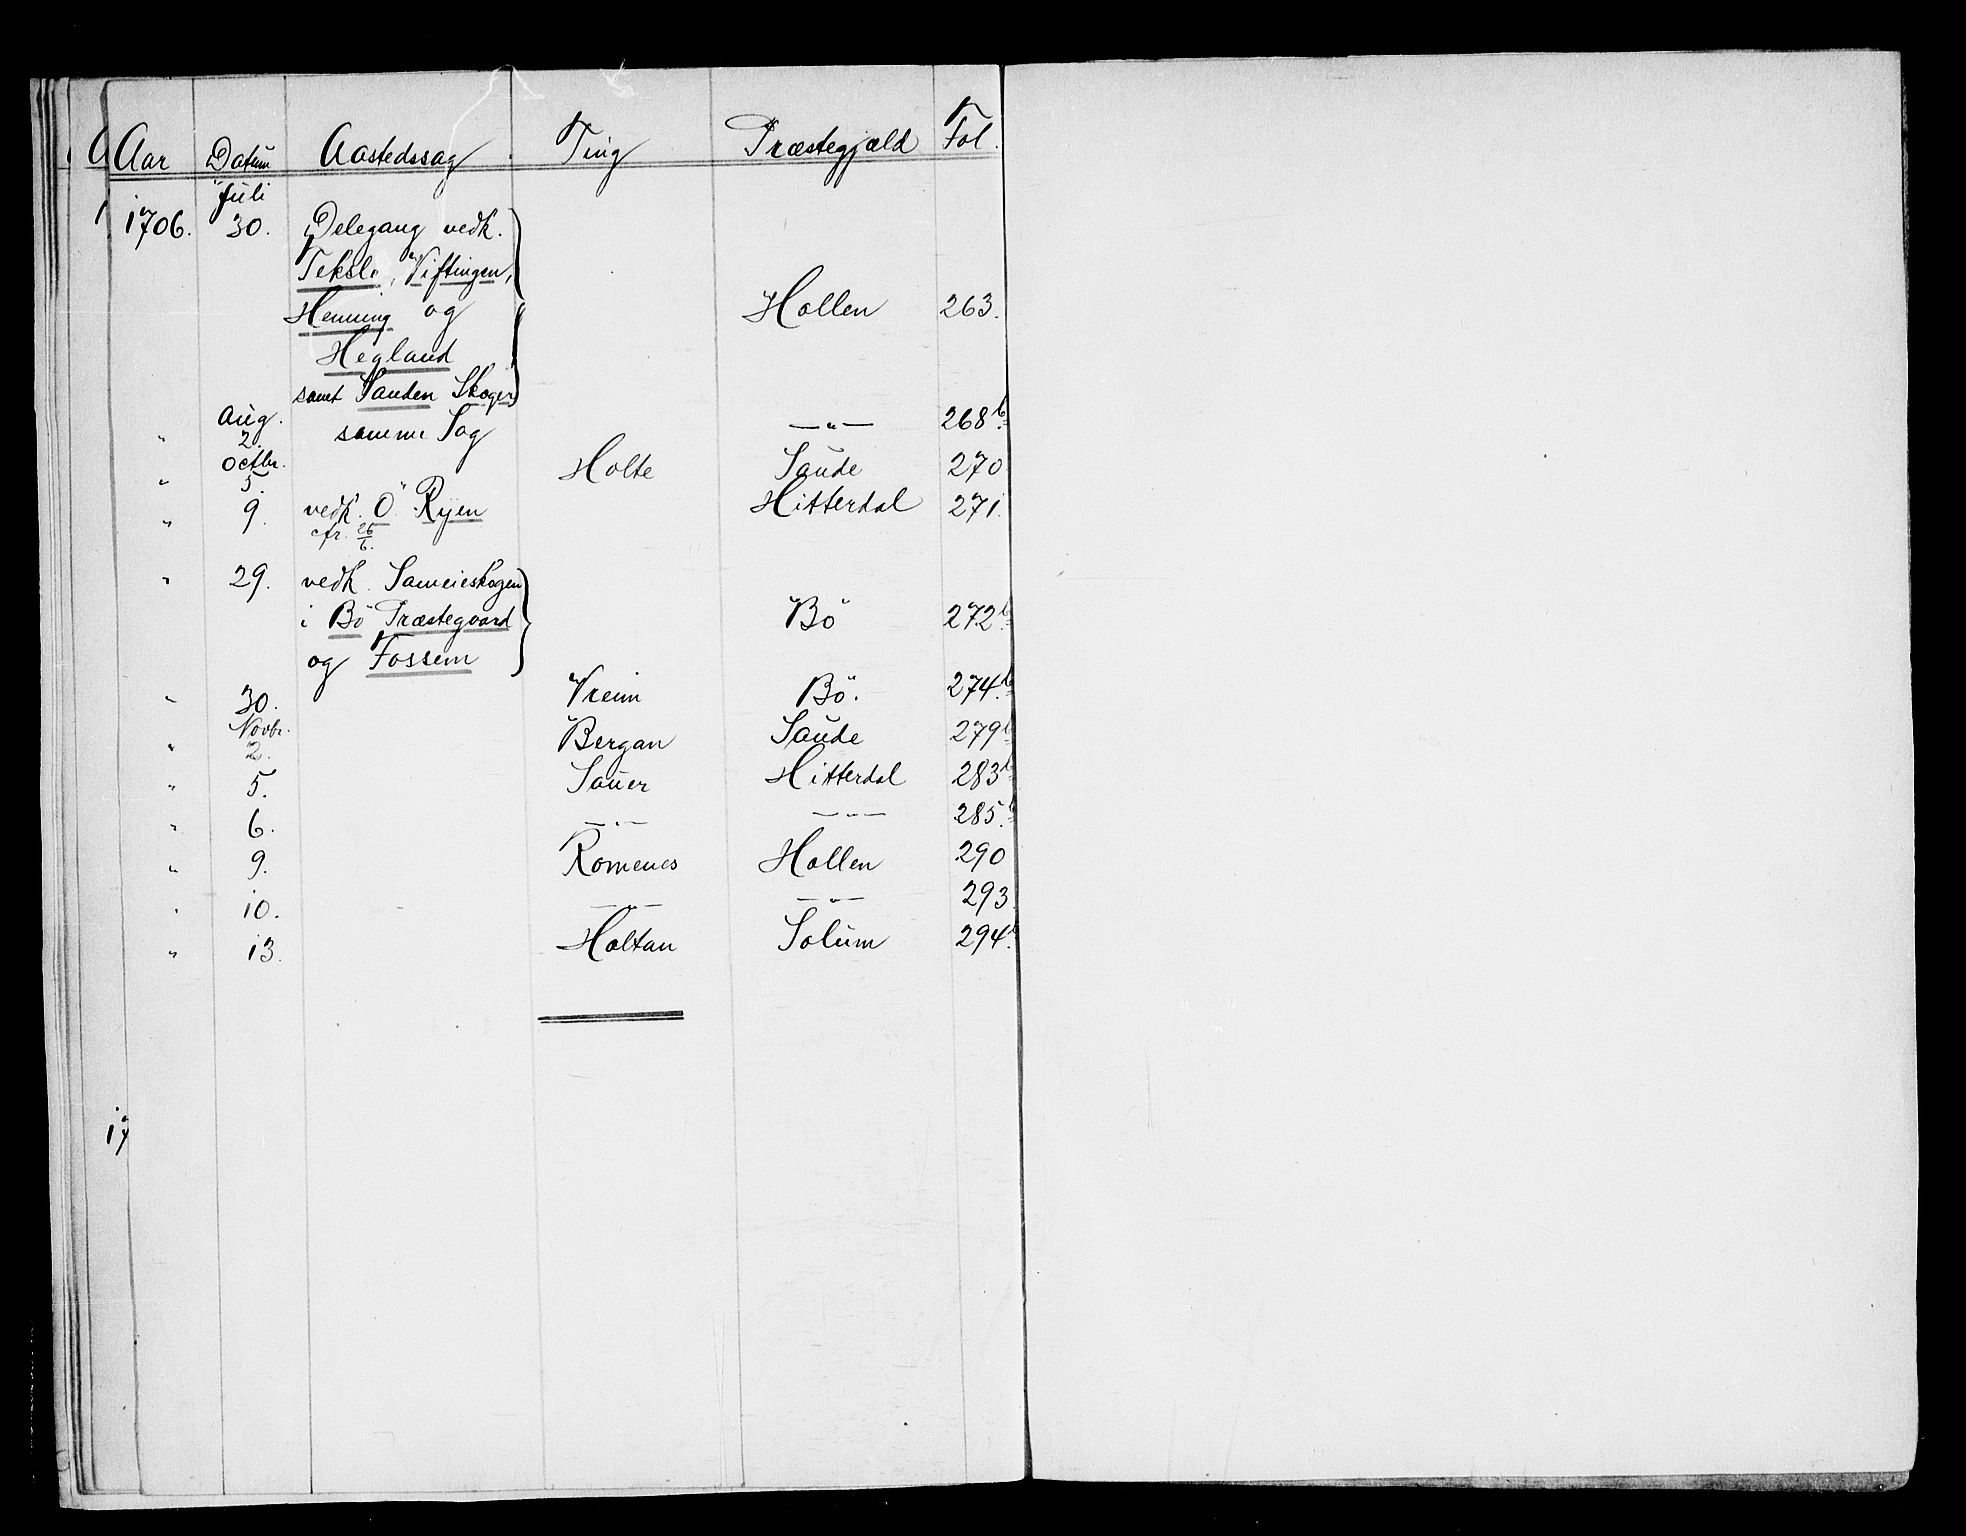 Aar Datum Aastedssag Ting Præstegjæld Fol.
Juli
1706. 30. Delegang vedk.
Teksle, Viftingen,
Henning og Hollen 263.
Hegland
samt Sanden Skoger
" Aug. 2. samme Sag —"— 268b.
" Octbr. 5. Holte Saude 270
" 9. vedk. Ö. Ryen Hitterdal 271.
cfr. 26/6.
" 29. vedk. Sameieskogen
i Bö Præstegaard Bö 272b.
og Fossem
" 30. Vreim Bö. 274.b
" Novbr. 2. Bergan Saude 279b
" 5. Sauer Hitterdal 283b
" 6. —"— —"— 285.b
" 9. Romenes Hollen 290
" 10. —"— —"— 293
" 13. Holtan Solum 294.b
17